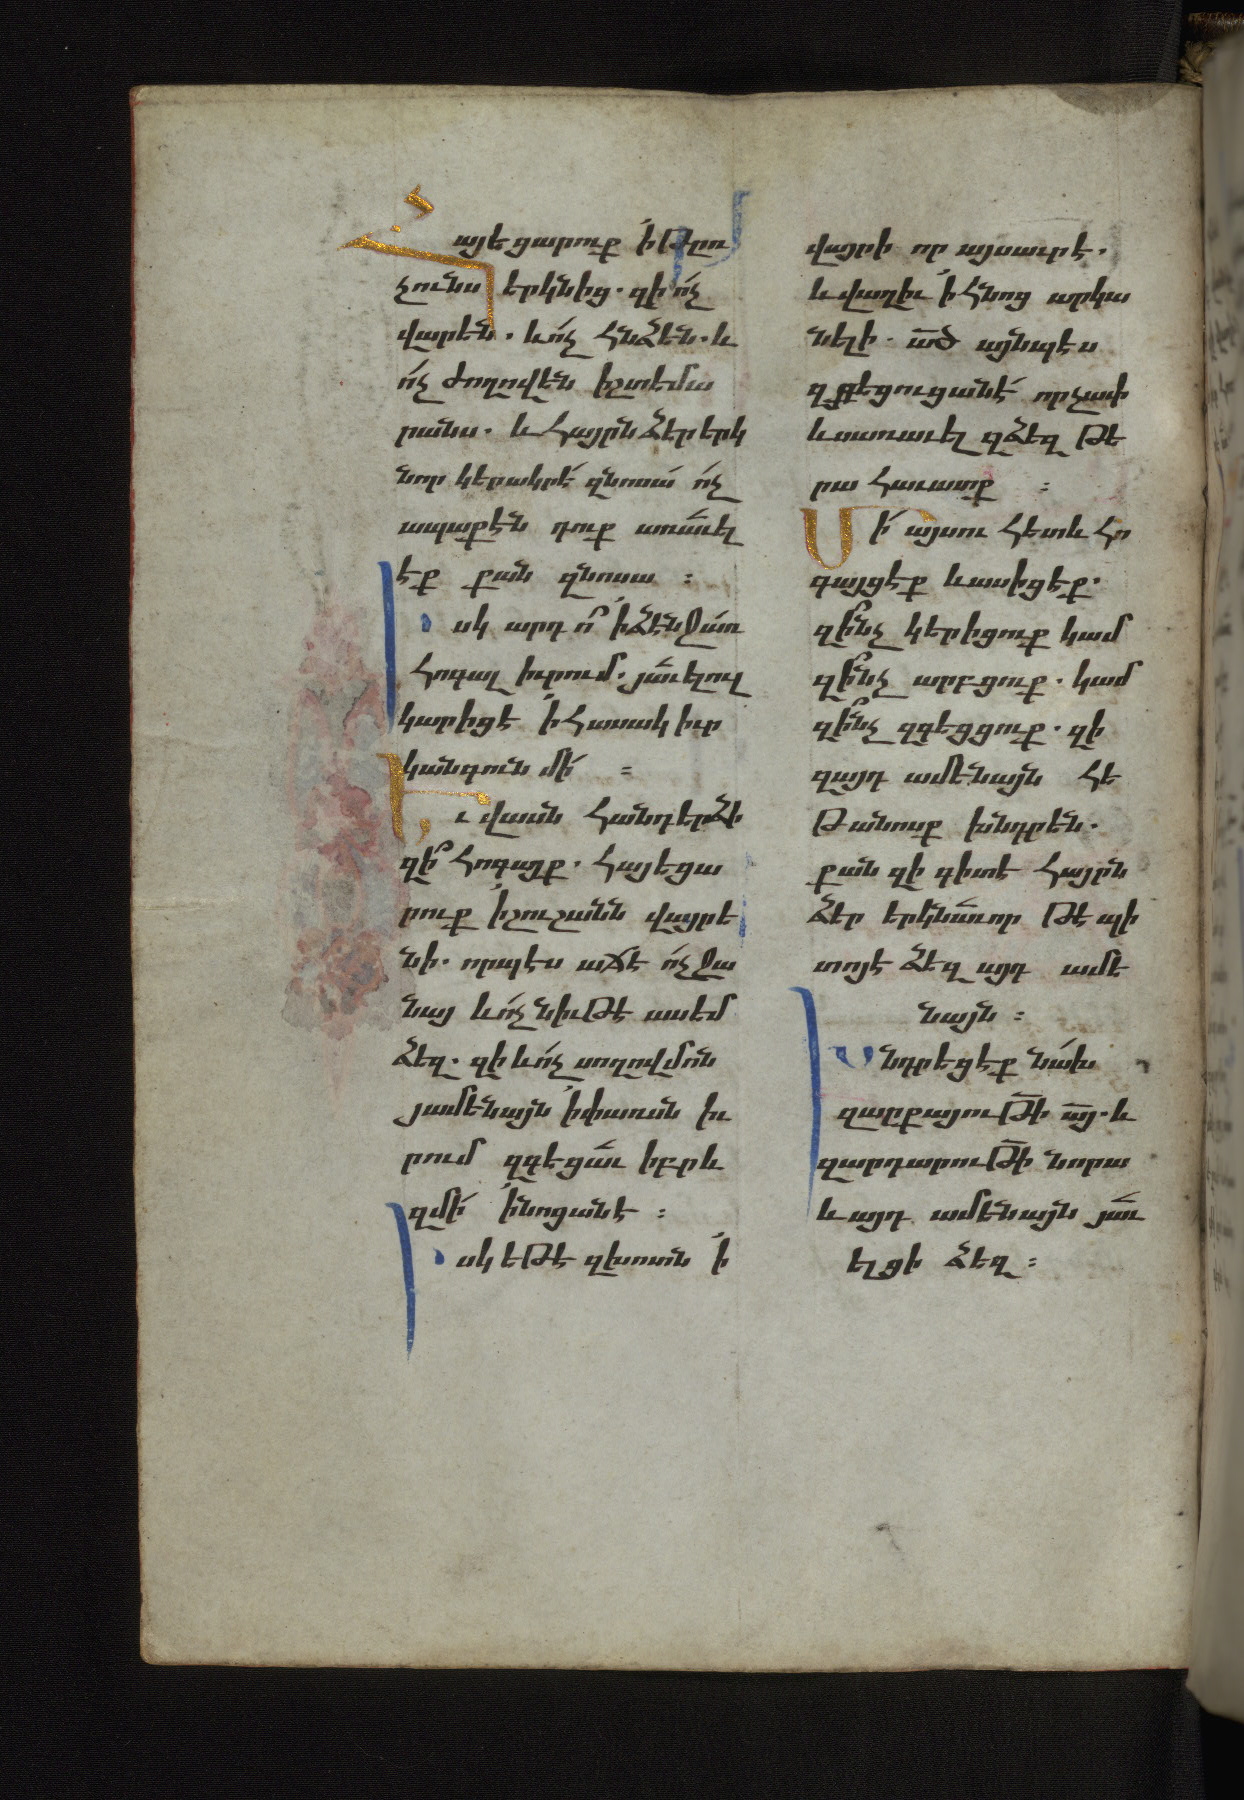 Հայեցարուք ՛ի թըռ
չունս երկնից. զի ո՛չ
վարեն. և ո՛չ հնձեն. և
ո՛չ ժողովեն իշտեմա
րանս. և հայրն ձեր երկ
նոր կերակրէ՛ զնոսա՛ ո՛չ
ապաքէն դուք առաւել
էք քան զնոսա :
Իսկ արդ ո՞ ՛ի ձէնջ առ
հոգալ իւրում. յաւելուլ
կարիցէ ՛ի հասակ իւր
կանգուն մի՛ :
Եւ վասն հանդերձի
զի՞ հոգայք. հայեցա
րուք ՛ի շուշանն վայրե
նի. որպէս աճէ ո՛չ ջա
նայ և ո՛չ նիւթէ ասեմ
ձեզ. զի և ո՛չ սողովմոն
յամենայն ՛ի փառսն իւ
րում զգեցաւ իբրև
զմի՛ ՛ի նոցանէ :
Իսկ եթէ զխոտն ՛ի
վայրի որ այսաւր է.
և վաղիւ ՛ի հնոց արկա
նելի. ա̅ծ այնպէս
զգեցուցանէ՛ որչափ
ևս առաւել զձեզ թե
րա հաւատք :
Մի՛ այսու հետև հո
գայցէք և ասիցէք.
զի՞նչ կերիցուք կամ
զի՞նչ արբցուք. կամ
զի՞նչ զգեցցուք. զի
զայդ ամենայն հե
թանոսք խնդրեն.
քան զի գիտէ հայրն
ձեր երկնաւոր թէ պի
տոյէ ձեզ այդ ամե
նայն :
Խնդրեցէք նա՛խ
զարքայութի̅ ա̅յ. և
զարդարութի̅ նորա
և այդ ամենայն յաւ
ելցի ձեզ :